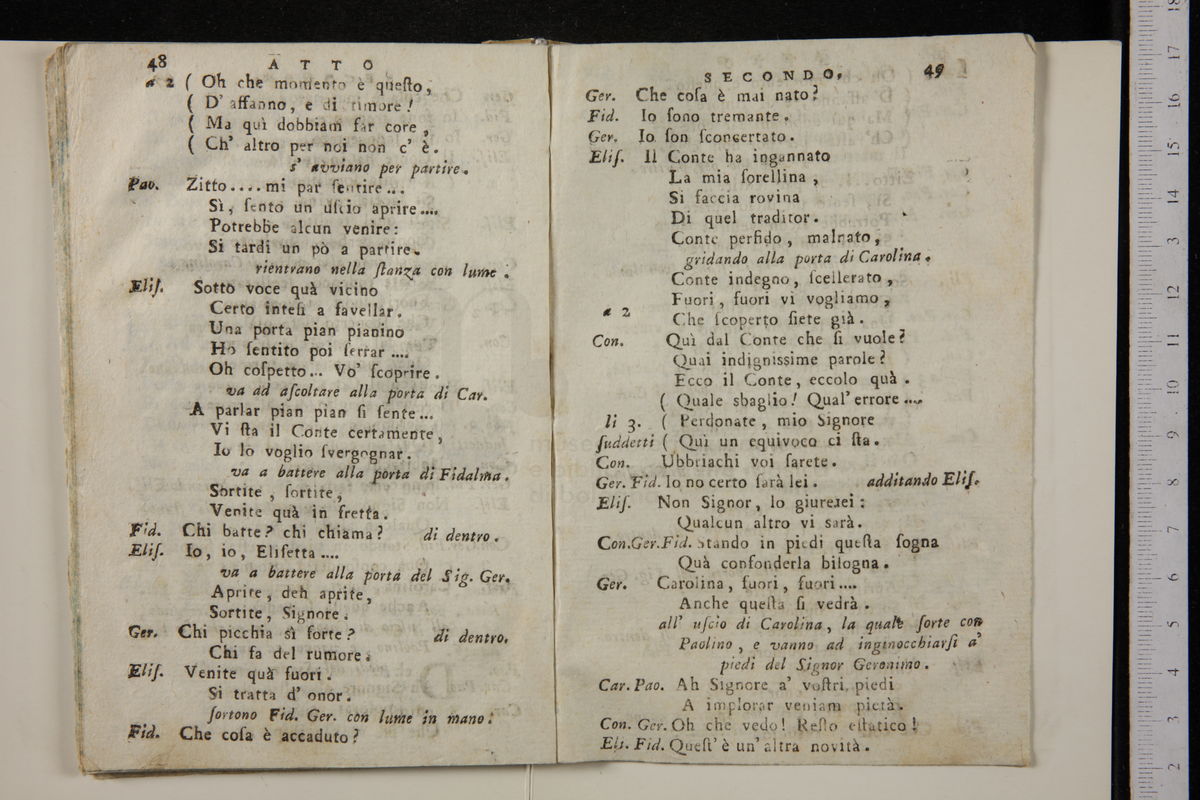 48
ATTO
a 2 ( Oh che momento è queſto,
( D' affanno, e di timore!
( Ma quì dobbiam far core,
( Ch' altro per noi non c' è.
s' avviano per partire.
Pao. Zitto.... mi par ſentire...
Sì, ſento un uſcio aprire....
Potrebbe alcun venire:
Si tardi un pò a partire.
rientrano nella ſtanza con lume.
Eliſ. Sotto voce quà vicino
Certo inteſi a favellar.
Una porta pian pianino
Ho ſentito poi ſerrar....
Oh coſpetto... Vo' ſcoprire.
va ad aſcoltare alla porta di Car.
A parlar pian pian ſi ſente...
Vi ſta il Conte certamente,
Io lo voglio ſvergognar.
va a battere alla porta di Fidalma.
Sortite, ſortite,
Venite quà in fretta.
Fid. Chi batte? chi chiama? di dentro.
Eliſ. Io, io, Eliſetta....
va a battere alla porta del Sig. Ger.
Aprite, deh aprite,
Sortite, Signore.
Ger. Chi picchia sì forte? di dentro.
Chi fa del rumore.
Eliſ. Venite quà fuori.
Si tratta d' onor.
ſortono Fid. Ger. con lume in mano.
Fid. Che coſa è accaduto?
SECONDO.
49
Ger. Che coſa è mai nato?
Fid. Io ſono tremante.
Ger. Io ſon ſconcertato.
Eliſ. Il Conte ha ingannato
La mia ſorellina,
Si faccia rovina
Di quel traditor.
Conte perfido, malnato,
gridando alla porta di Carolina.
Conte indegno, ſcellerato,
Fuori, fuori vi vogliamo,
a 2
Che ſcoperto ſiete già.
Con. Quì dal Conte che ſi vuole?
Quai indignissime parole?
Ecco il Conte, eccolo quà.
( Quale sbaglio! Qual' errore....
li 3. ( Perdonate, mio Signore
ſuddetti ( Quì un equivoco ci ſta.
Con. Ubbriachi voi ſarete.
Ger. Fid. Io no certo ſarà lei. additando Eliſ.
Eliſ. Non Signor, lo giurerei:
Qualcun altro vi sarà.
Con.Ger.Fid. Stando in piedi queſta ſogna
Quà confonderla biſogna.
Ger. Carolina, fuori, fuori....
Anche queſta ſi vedrà.
all' uſcio di Carolina, la quale ſorte con
Paolino, e vanno ad inginocchiarſi a'
piedi del Signor Geronimo.
Car. Pao. Ah Signore a' voſtri piedi
A implorar veniam pietà.
Con. Ger. Oh che vedo! Reſto eſtatico!
Eli. Fid. Queſt' è un' altra novità.